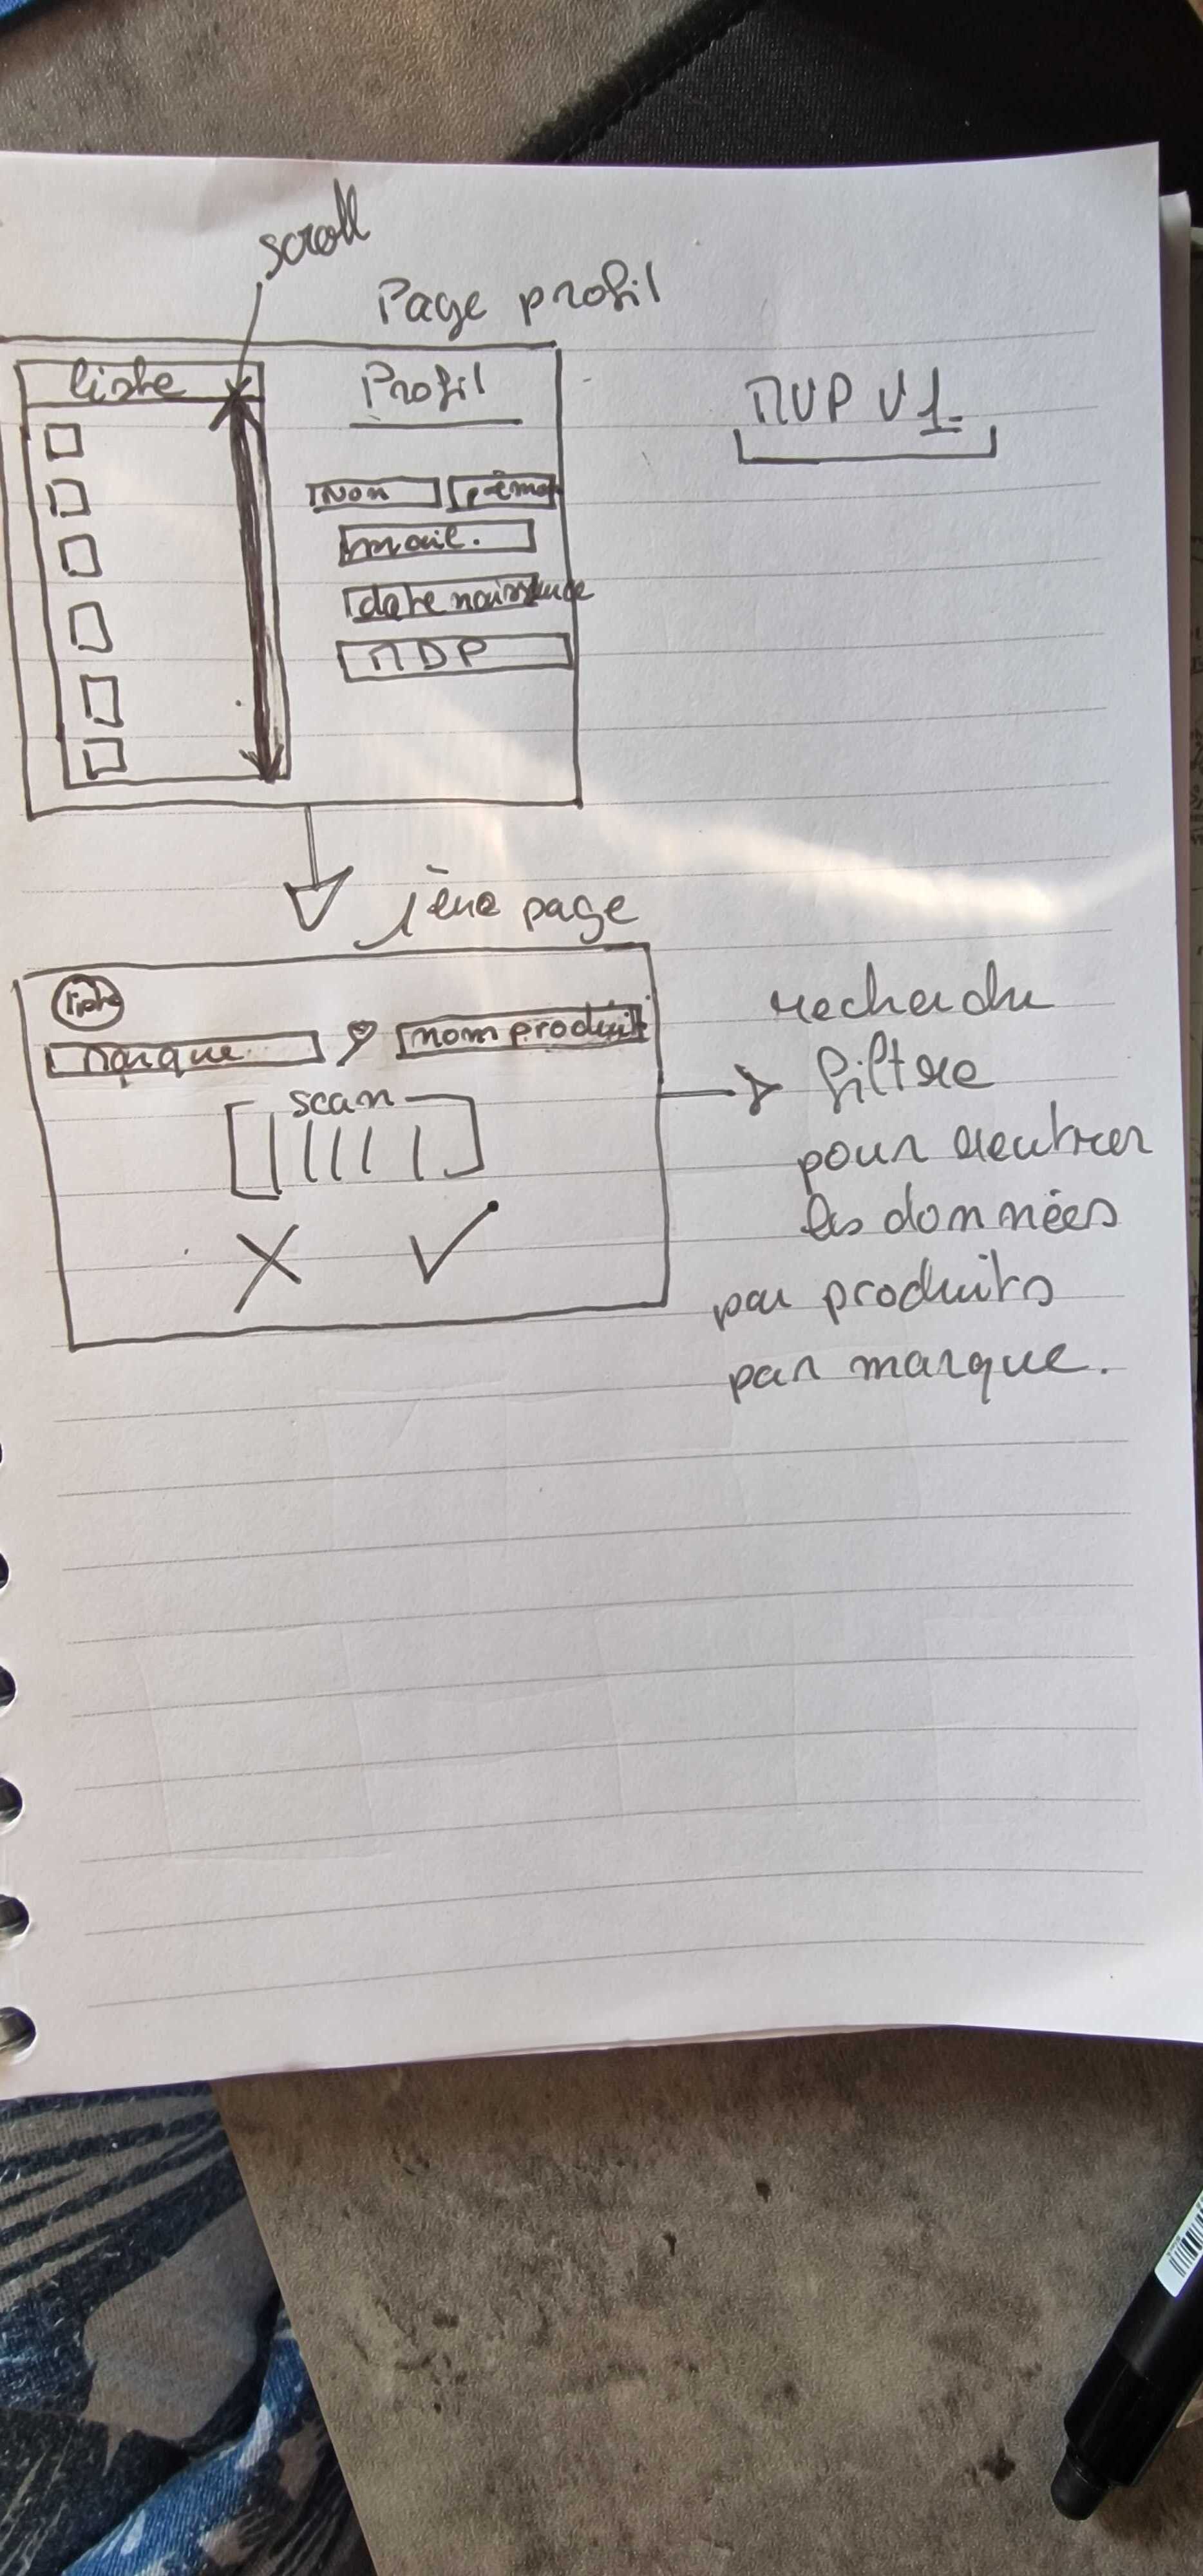 scroll
Page profil
liste
Profil
MVP V1.
Nom
mail.
date naissance
MDP
1ène page
liste
marque
nom produit
scan
filtre
pour rentrer
les données
par produits
par marque.